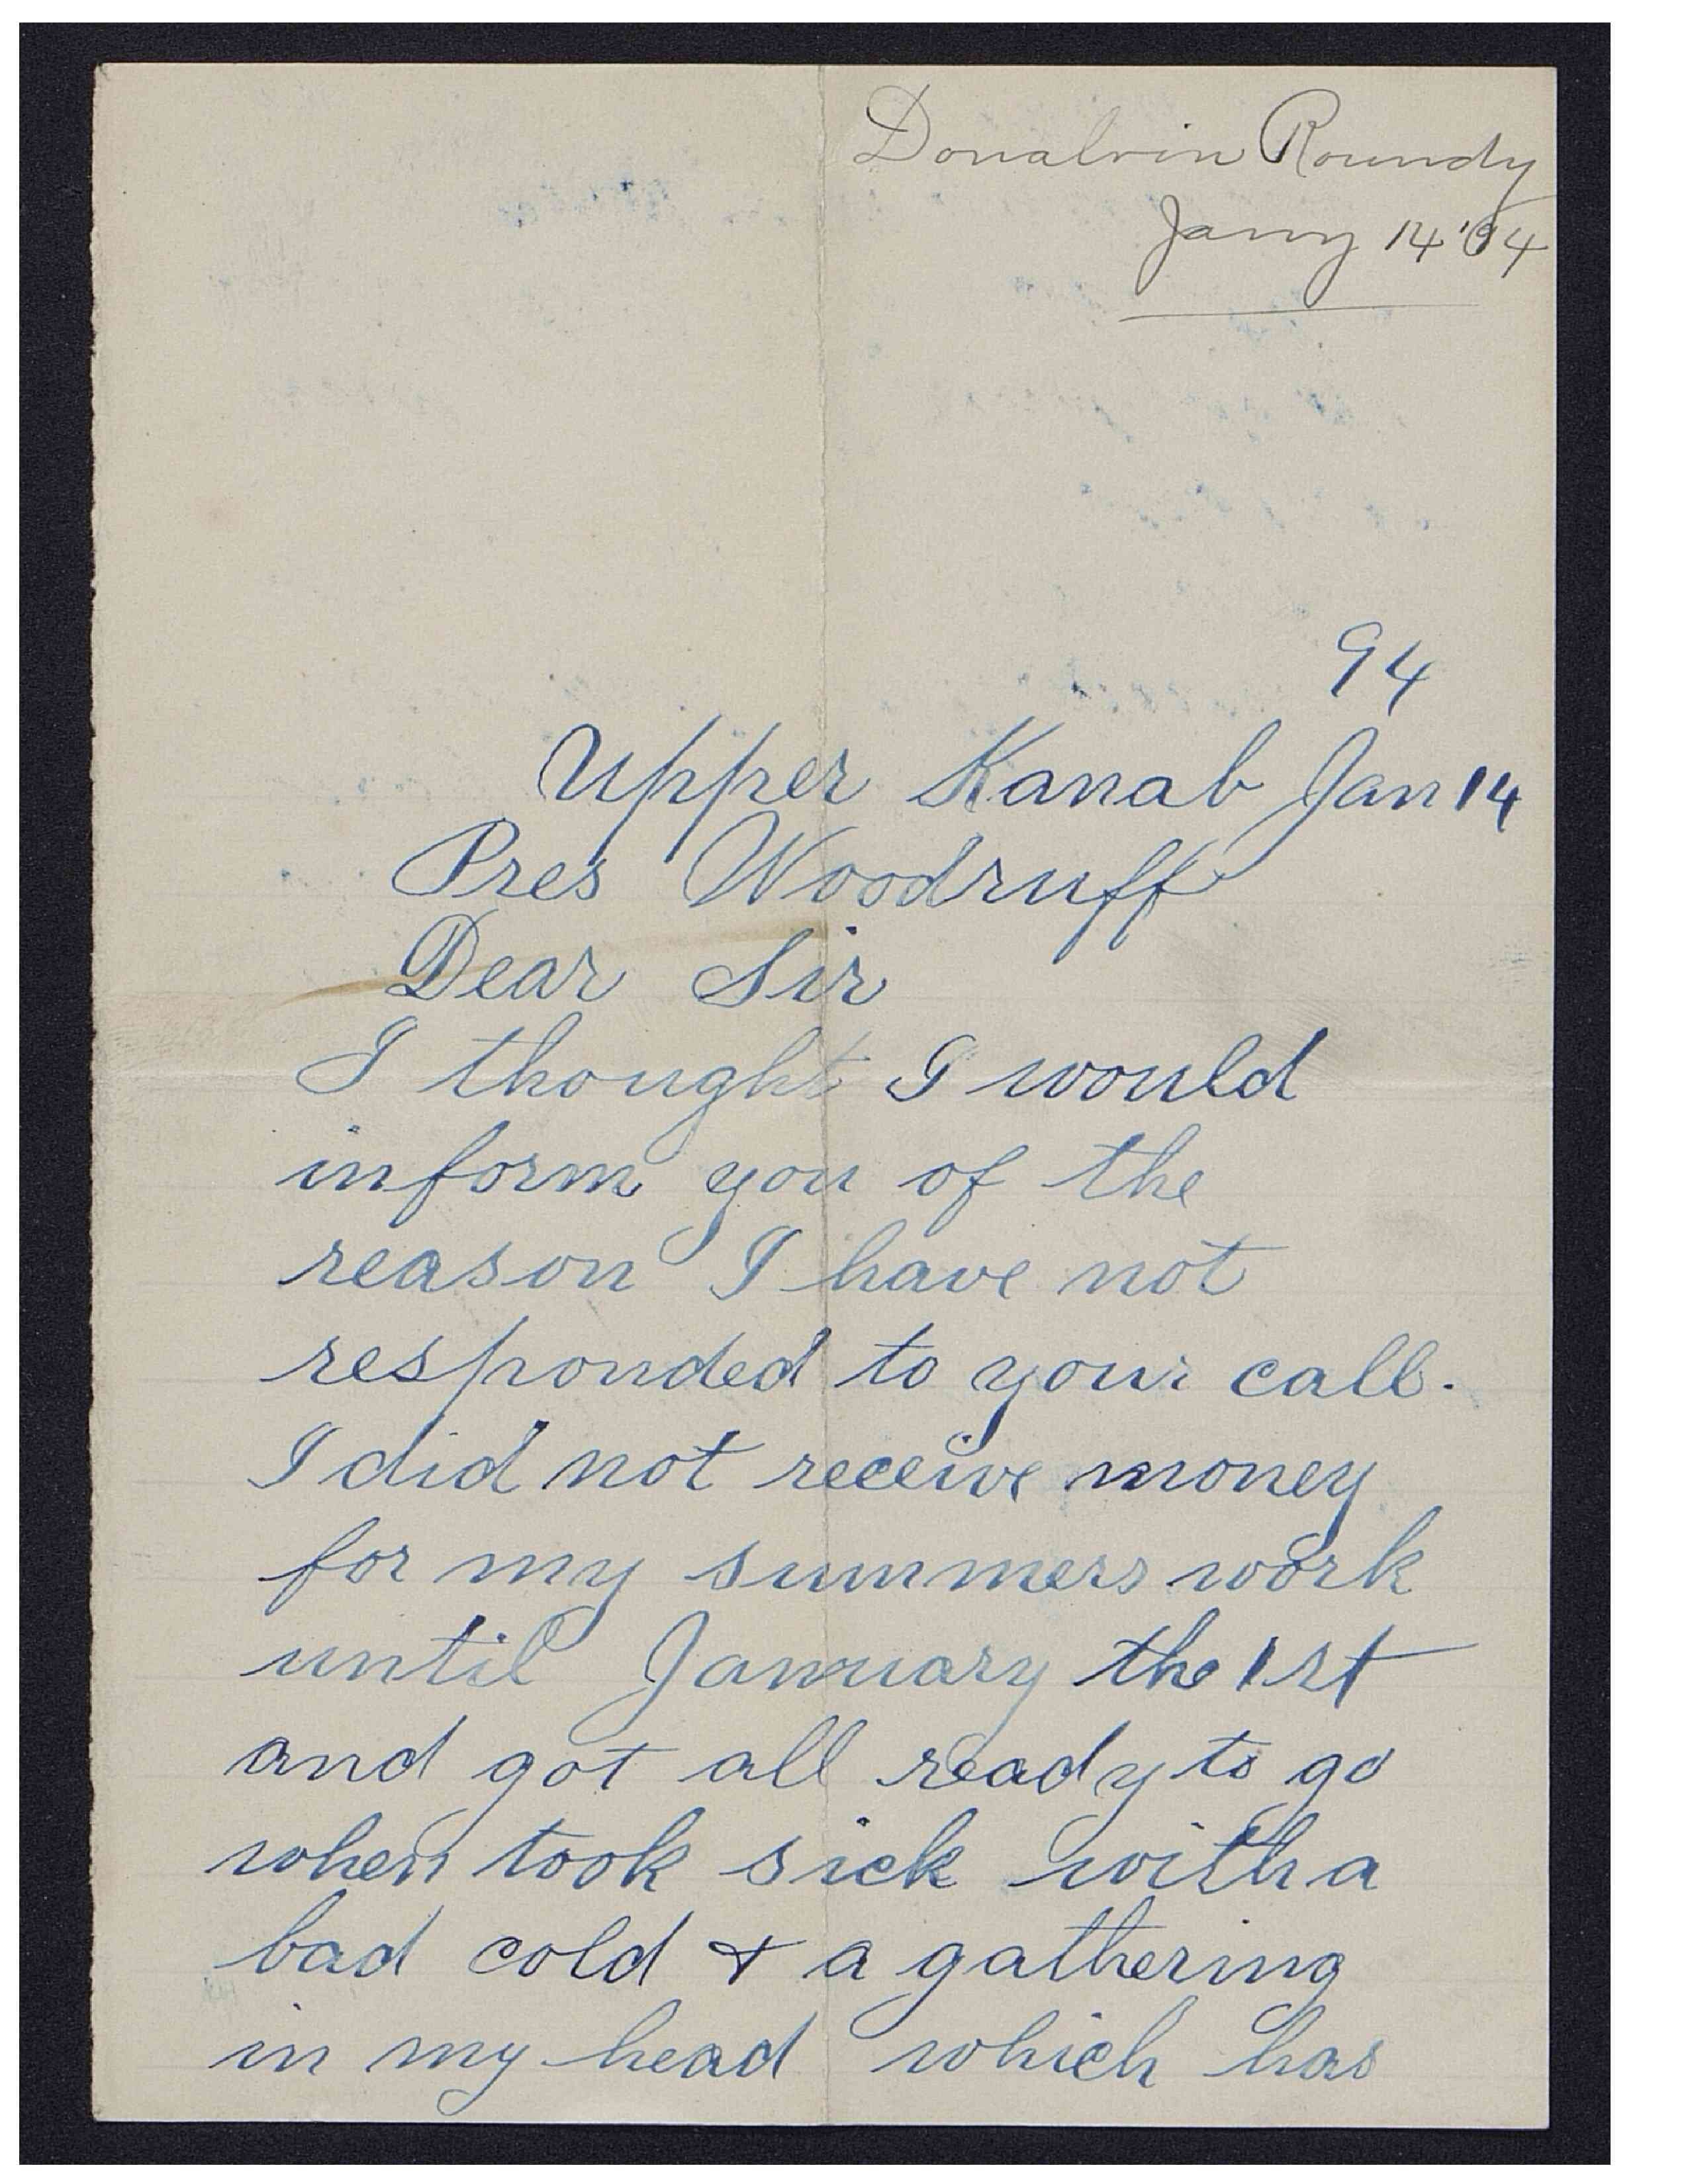 Donalvin Roundy
Jany 14 '94
94
Upper Kanab Jan 14
Pres Woodruff
Dear Sir
I thought I would
inform you of the
reason I have not
responded to your call.
I did not receive money
for my summers work
until January the 1st
and got all ready to go
when took sick with a
bad cold & a gathering
in my head which has